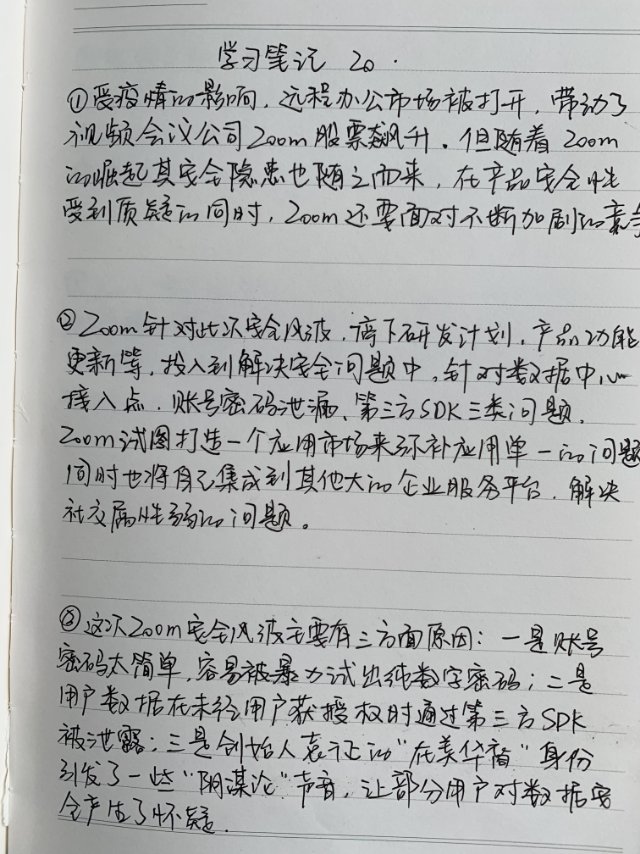 学习笔记 20.
①受疫情的影响，远程办公市场被打开，带动了
视频会议公司Zoom股票飙升。但随着Zoom
的崛起其安全隐患也随之而来，在产品安全性
受到质疑的同时，Zoom还要面对不断加剧的竞争
②Zoom针对此次安全风波，停下研发计划，产品功能
更新等，投入到解决安全问题中，针对数据中心
接入点、账号密码泄漏、第三方SDK三类问题，
Zoom试图打造一个应用市场来弥补应用单一的问题
同时也将自己集成到其他大的企业服务平台，解决
社交属性弱的问题。
③这次Zoom安全风波主要有三方面原因：一是账号
密码太简单，容易被暴力试出纯数字密码；二是
用户数据在未经用户获授权时通过第三方SDK
被泄露；三是创始人袁征的"在美华裔"身份
引发了一些"阴谋论"声音，让部分用户对数据安
全产生了怀疑.